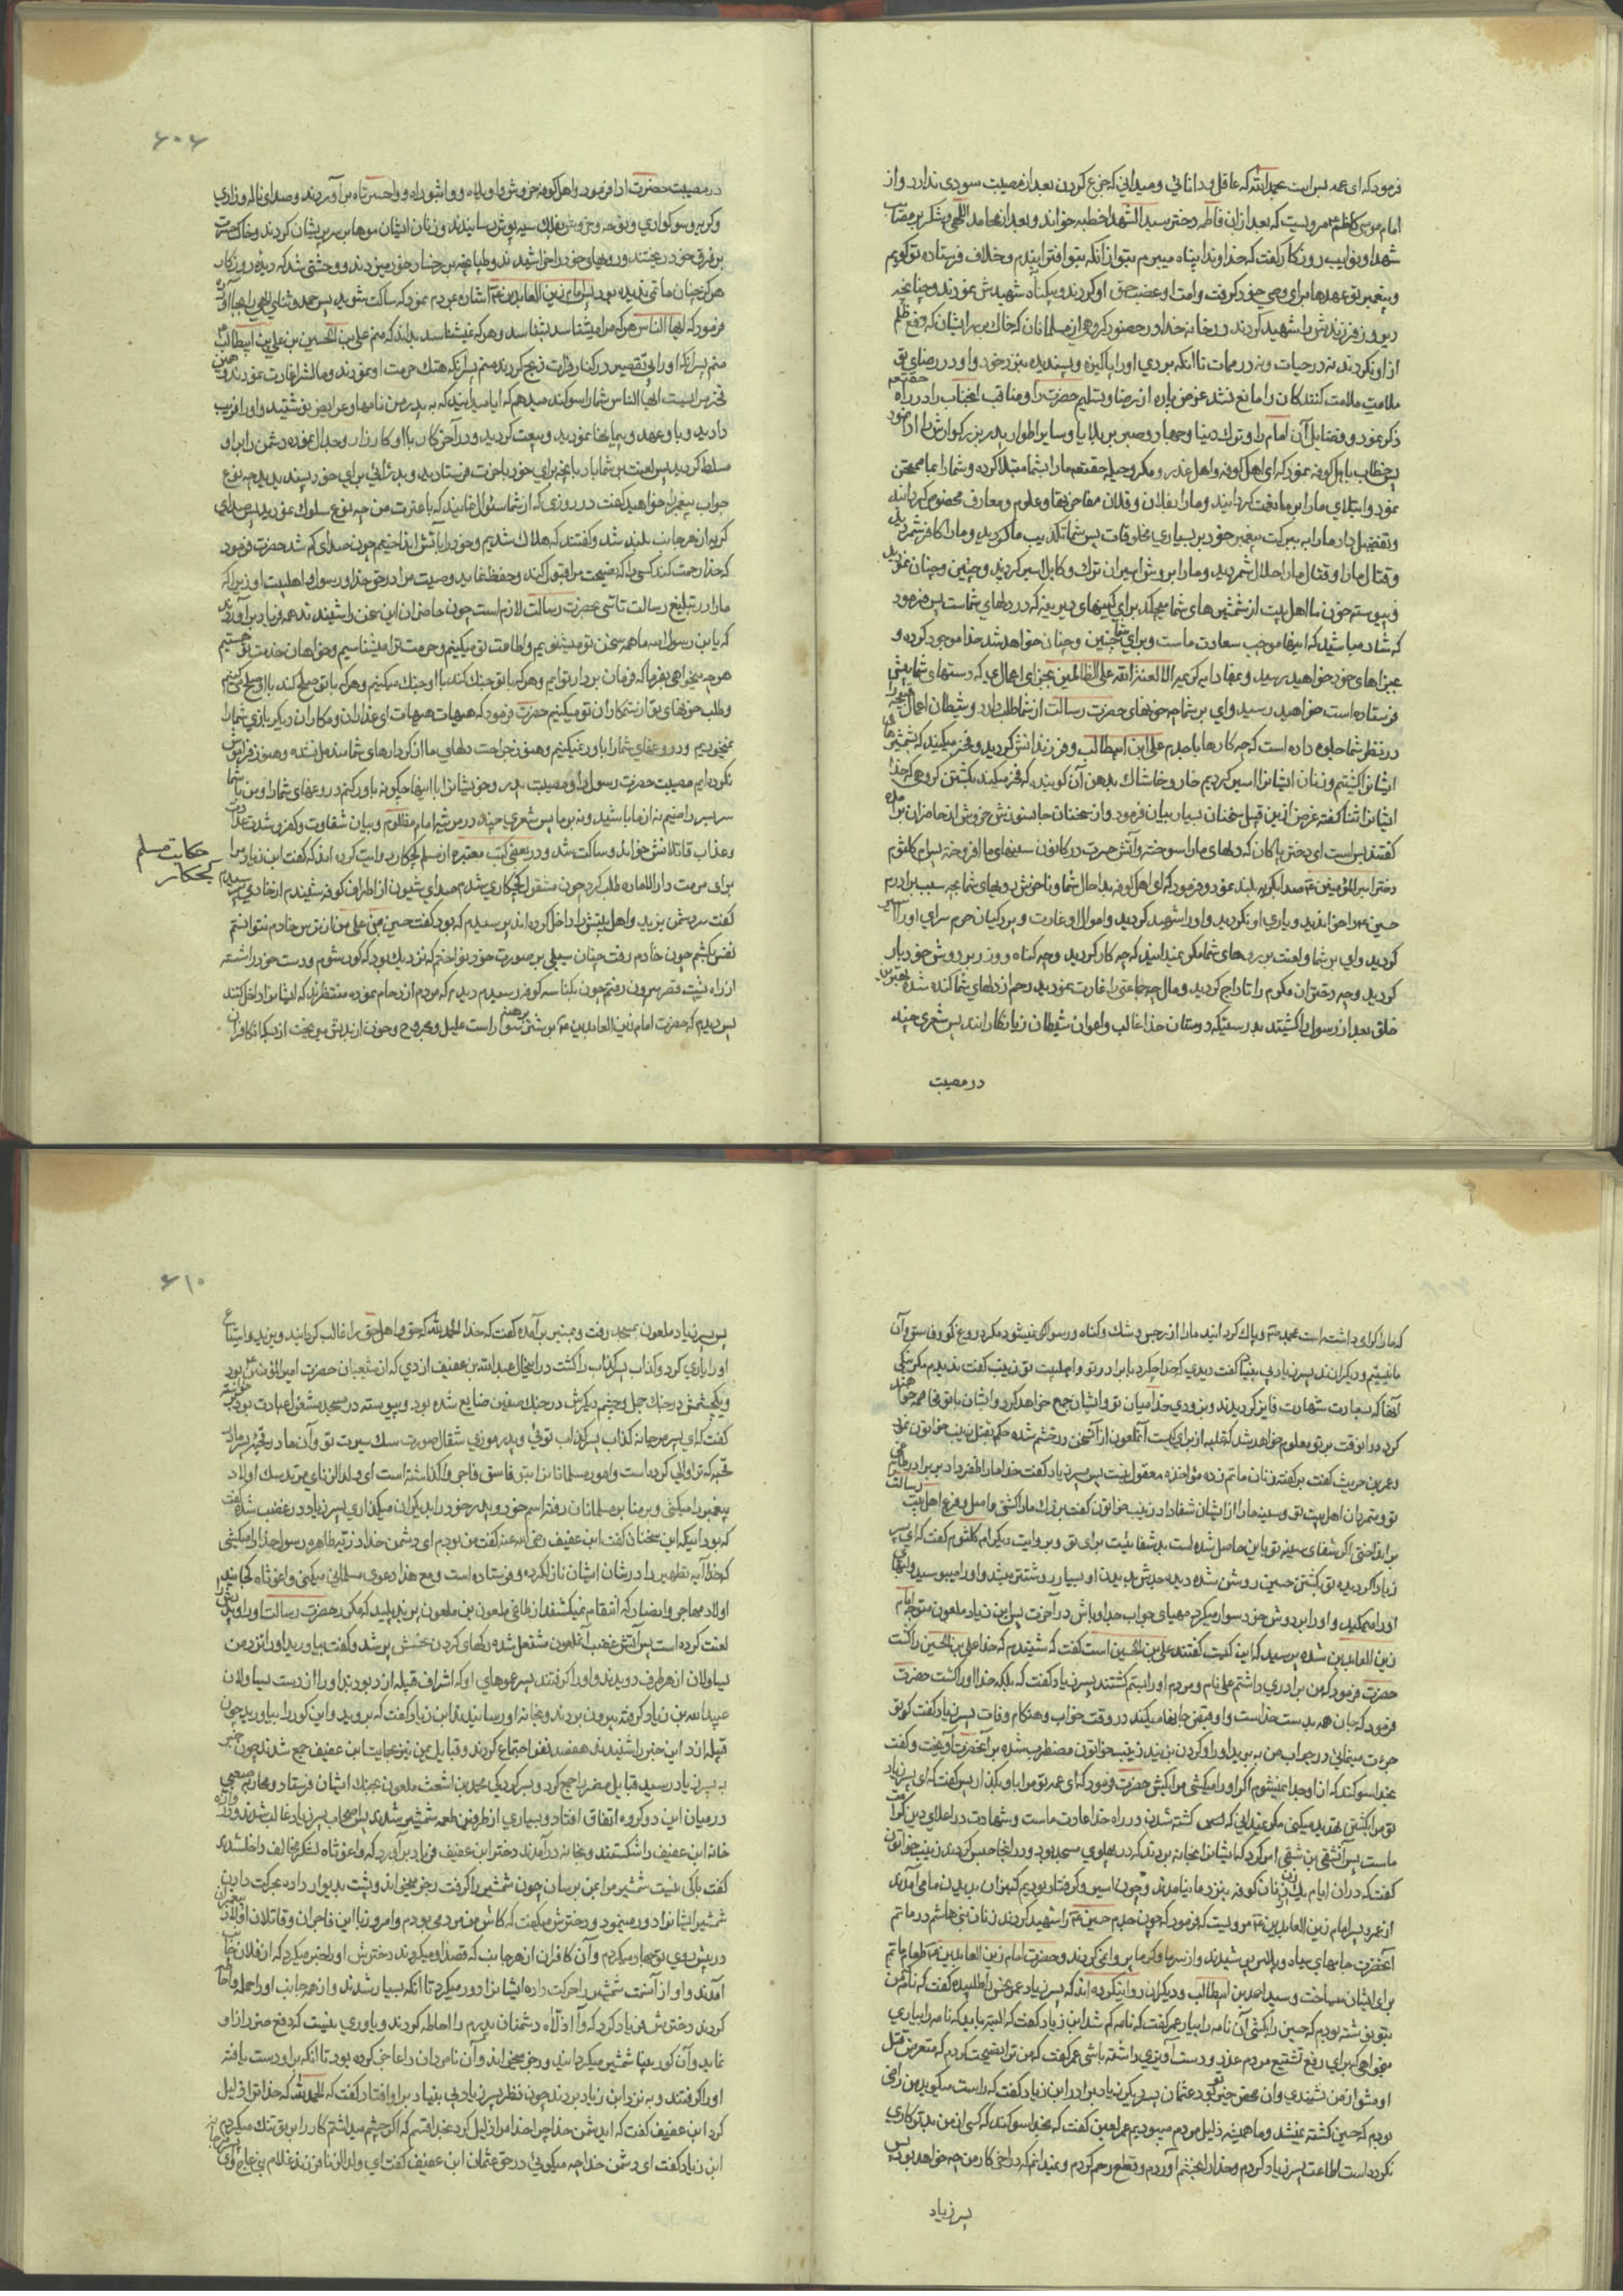 فرمود که ای عمه بس است بحمدالله که عاقل و دانائی و میدانی که جزع کردن بعد از مصیبت سودی ندارد و از
امام موسی کاظم مرویست که بعد از ان فاطمه دختر سید الشهدا خطبه خواند و بعد از محامد اللهی و شکر بر مصائب
شهدا و نوایب روزکار کفت که خداوندا پناه میبرم بتو از انکه بتو افترا بندم و خلاف فرستاده تو کویم
و پیغمبر تو عهدها برای وصی خود کرفت و امت او غصب حق او کردند و بیکناه شهیدش نمودند و چنانچه
دیروز فرزندش را شهید کردند در خانه خدا و در حضور کروهی از مسلمانان که خاک بر سر ایشان که دفع ظلم
از او نکردند نه در حیات و نه در ممات تا انکه بردی او را پاکیزه و پسندیده بنزد خود و او در رضای تو
ملامت ملامت کنندکان را مانع نشد غرض پاره از رضا و تسلیم حضرت را و مناقب انجناب را در راه
ذکر نمود و فضایل آن امام را و ترک دنیا و جهاد و صبر بر بلایا و سایر اطوار پدر بزرکوارش را ادا نمود
پس خطاب باهل کوفه نمود که ای اهل کوفه و اهل غدر و مکر و حیله حقتعالی ما را بشما مبتلا کرده و شما را بما ممتحن
نمود و ابتلای ما را بر ما نعمت کردانید و ما را بفلان و فلان مفاخر و علوم و معارف مخصوص کردانید
و تفضیل داد ما را به برکت پیغمبر خود بر بسیاری مخلوقات پس شما تکذیب ما کردید و ما را کافر شمردید
و قتال ما را و قتال ما را حلال شمردید و ما را بروش اسیران ترک و کابل اسیر کردید و چنین و چنان نمودید
و پیوسته خون ما اهل بیت از شمشیرهای شما میچکد برای کینهای دیرینه که در دلهای شماست پس فرمود
که شاد مباشید که اینها موجب سعادت ماست و برای شما چنین و چنان خواهد شد خدا موجود کرده و
بجزاهای خود خواهید رسید و بمفاد ایه کریمه الا لعنة الله علی الظالمین بجزای اعمال بد که دستهای شما پیش
فرستاده است خواهید رسید وای بر شما چه خونهای حضرت رسالت از شما طلب دارد و شیطان اعمال قبیحه را
در نظر شما جلوه داده است که چه کارها با جدم علی ابن ابیطالب و فرزندانش کردید و فخر میکنید که بشمشیرها
ایشانرا کشتیم و زنان ایشانرا اسیر کردیم خار و خاشاک بدهن آن کوینده که فخر میکند بکشتن کروهی که خدا
ایشانرا ثنا کفته غرض از ین قبیل سخنان بسیار بیان فرمود و از سخنان جانسوزش خروش از حاضران برآمده
کفتند بس است ای دختر پاکان که دلهای ما را سوخته و آتش حسرت در کانون سینهای ما افروخته پس ام کلثوم
دختر امیر المؤمنین صدا بکریه بلند نمود و فرمود که ای اهل کوفه بدا حال شما و ناخوش رویهای شما بچه سبب برادرم
حسین را خواندید و یاری او نکردید و او را شهید کردید و اموال او غارت و پردکیان حرم سرای او را اسیر
کردید وای بر شما و لعنت بر رویهای شما مکر نمیدانید که چه کار کردید و چه کناه و وزر بر دوش خود بار
کردید و چه دختران مکرم را تاراج کردید و مال چه جماعتی را غارت نمودید رحم از دلهای شما کنده شده بهترین
خلق بعد از رسول را کشتید بدرستیکه دوستان خدا غالب و اعوان شیطان زیانکارانند پس شعری چند
در مصیبت
۶۰۶
در مصیبت حضرت ادا فرمود و اهل کوفه خروش واویلاه و واثبوراه و واحسرتاه بر آوردند و صدای ناله و زاری
و کریه و سوکواری و نوحه و خروش بفلک سیه پوش رسانیدند و زنان ایشان موها بر سر پریشان کردند و خاک حسرت
بر فرق خود ریختند و رویهای خود را خراشیدند و طپانچه بر رخسار خود میزدند و وحشتی شد که دیده روزکار
هرکز چنان ماتمی ندیده بود پس امام زین العابدین اشاره بمردم نمود که ساکت شوید پس حمد و ثنای الهی را بجا آورده
فرمود که ایها الناس هر که مرا میشناسد بشناسد و هر که نمیشناسد بداند که منم علی بن الحسین بن علی بن ابیطالب
منم پسر آنکه او را بی تقصیر در کنار فرات ذبح کردند منم پسر آنکه هتک حرمت او نمودند و مالش را غارت نمودند و همین
فخر مرا بست ایها الناس شما را سوکند میدهم که ایا میدانید که به پدر من نامها و عرایض نوشتید و او را فریب
دادید و با او عهد و پیمانها نمودید و بیعت کردید و در آخر کار با او کارزار و جدال نموده دشمن را بر او
مسلط کردید پس لعنت بر شما باد بآنچه برای خود بآخرت فرستادید و بد رائی برای خود پسندیدید بچه نوع
جواب پیغمبر را خواهید کفت در روزی که از شما سئوال نماید که با عترت من چه نوع سلوک نمودید پس صدای
کریه از هر جانب بلند شد و کفتند که هلاک شدیم و خود را بآتش انداختیم چون صدای کم شد حضرت فرمود
که خدا رحمت کند کسی را که نصیحت مرا قبول کند و حفظ نماید وصیت مرا در حق خدا و رسول و اهلبیت او زیرا که
ما را در تبلیغ رسالت تاسی بحضرت رسالت لازم است چون حاضران این سخن را شنیدند همه فریاد برآوردند
که یابن رسول الله ما همه سخن تو میشنویم و اطاعت تو میکنیم و حرمت ترا میشناسیم و خواهان خدمت تو هستیم
هر چه میخواهی بفرما که فرمان بردار توایم و هر که با تو جنک کند با او جنک میکنیم و هر که با تو صلح کند با او صلح میکنیم
و طلب خونهای تو از ستمکاران تو میکنیم حضرت فرمود که هیهات هیهات ای غداران و مکاران دیکر بازی شما را
نمیخوریم و دروغهای شما را باور نمیکنیم و هنوز جراحت دلهای ما از کردارهای شما مندمل نشده و هنوز فراموش
نکرده ایم مصیبت حضرت رسول را و مصیبت پدر و خویشانرا با اینها چکونه باور کنم دروغهای شما را و من با شما
سر بسر راضیم نه از ما باشید و نه بر ما پس شعری چند در مرثیه امام مظلوم و بیان شقاوت و کفر و شدت عداوت
و عذاب قاتلانش خواند و ساکت شد و در بعضی کتب معتبره از مسلم کچکار روایت کرده اند که کفت ابن زیاد مرا
حکایت مسلم
کچکار
برای مرمت دار الاماره طلب کرد چون مشغول کچکاری شدم صدای شیون از اطراف کوفه شنیدم از خادمی پرسیدم
کفت سر دشمن یزید و اهل بیتش را داخل کرده اند پرسیدم که بود کفت حسین بن علی من از ترس خادم نتوانستم
نفس بکشم چون خادم رفت چنان سیلی بر صورت خود نواختم که نزدیک بود که کور شوم و دست خود را شسته
از راه پشت قصر بیرون رفتم چون بکناسه کوفه رسیدم دیدم که مردم ازدحام نموده منتظرند که ایشانرا داخل کنند
پس دیدم که حضرت امام زین العابدین بر شتر برهنه سوار است علیل و مجروح و خون از بدنش میریخت
که ما را کرامی داشته است بمحمد و پاک کردانید ما را از رجس و شک و کناه و رسوا نمیشود مکر دروغ کو و فاسق و آن
ما نیستیم و دیکران ند پسر زیاد بی بنیاد کفت دیدی که خدا چکرد با برادر تو و اهلبیت تو زینب کفت ندیدم مکر نیکی
آنها که بسعادت شهادت فایز کردیدند و بزودی خدا میان تو و ایشان جمع خواهد کرد و ایشان با تو مخاصمه خواهند
کرد در انوقت بر تو معلوم خواهد شد که غلبه از برای کیست آنملعون از آن سخن در خشم شده حکم بقتل زینب خواتون نمود
و عمر بن حریث کفت بر کفته زنان ماتم زده مؤاخذه معقول نیست پس پسر زیاد کفت خدا ما را ظفر داد بر برادر طاغی
تو و متمردان اهل بیت تو و سینه ما را از ایشان شفا داد زینب خواتون کفت بزرک ما را کشتی و اصل و فرع اهل بیت رسالت را
بر انداختی اکر شفای سینه تو باین حاصل شده است بد شفائیست برای تو و بروایت دیکر ام کلثوم کفت که ای پسر
زیاد اکر دیده تو بکشتن حسین روشن شده دیده جدش بدیدن او بسیار روشنتر میشد و او را میبوسید و لبهای
او را میمکید و او را بر دوش خود سوار میکرد مهیای جواب جد او باش در آخرت پس ابن زیاد ملعون متوجه امام
زین العابدین شده پرسید که این کیست کفتند علی بن الحسین است کفت که شنیدم که خدا علی بن الحسین را کشت
حضرت فرمود که من برادری داشتم علی نام و مردم او را بستم کشتند پسر زیاد کفت که بلکه خدا او را کشت حضرت
فرمود که جان همه بدست خداست و او قبض جانها میکند در وقت خواب و هنکام وفات پسر زیاد کفت که تو
جرءت مینمائی در جواب من به برید او را و کردن بزنید زینب خواتون مضطرب شده بر آنحضرت آویخت و کفت
بخدا سوکند که از او جدا نمیشوم اکر او را میکشی مرا بکش حضرت فرمود که ای عمه تو مرا باو بکذار پس کفت که ای پسر زیاد
تو مرا بکشتن تهدید میکنی مکر نمیدانی که کشته شدن در راه خدا عادت ماست و شهادت در اعلای دین کرامت
ماست پس آنشقی بن شقی امر کرد که ایشانرا بخانه بردند که در پهلوی مسجد بود و در انجا حبس کردند زینب خواتون
کفت که در ان ایام زنان کوفه بنزد ما نیامدند و چون اسیر و کرفتار بودیم کنیزان بدیدن ما می آمدند
از عمرو پسر امام زین العابدین مرویست که فرمود که چون جدم حسین را شهید کردند زنان بنی هاشم در ماتم
آنحضرت جامهای سیاه و پلاس پوشیدند و از سرما و کرما پروا نمیکردند و حضرت امام زین العابدین طعام ماتم
برای ایشان میساخت و سید ابن ابیطالب و دیکران روایت کرده اند که پسر زیاد عمر نحس را طلبیده کفت که نامه من
بتو نوشته بودیم که حسین را بکشی آن نامه را بیار عمر کفت که نامه کم شد ابن زیاد کفت که البته باید که نامه را بیاری
میخواهی که برای رفع تشنیع مردم عذر و دست آویزی داشته باشی عمر کفت که من ترا نصیحت کردم که متعرض قتل
او مشو از من نشنیدی و آن محض خیر تو بود عثمان پسر دیکر زیاد برادر ابن زیاد کفت که راست میکوید من راضی
بودم که حسین کشته نمیشد و ما همیشه ذلیل مردم میبودیم عمر لعین کفت که بخدا سوکند که کسی از من بدتر کاری
نکرده است اطاعت پسر زیاد کردم و خدا را بخشم آوردم و قطع رحم کردم و نمیدانم که در اخر کار من چه خواهد بود پس
پسر زیاد
۶۱۰
پس پسر زیاد ملعون بمسجد رفت و بمنبر بر آمده کفت که خدا الحمد لله که حق و اهل حق را غالب کردانید و یزید و اتباع
او را یاری کرد و کذاب پسر کذاب را کشت در انحال عبدالله بن عفیف ازدی که از شیعیان حضرت امیر المؤمنین بود
و یکچشمش در جنک جمل و چشم دیکرش در جنک صفین ضایع شده بود و پیوسته در مسجد مشغول عبادت بود برخواسته
کفت که ای پسر مرجانه کذاب پسر کذاب توئی و پدر
قحبه که ترا والی کرده است و امور مسلمانانرا بتو فاسق فاجر واکذاشته است ای ولد الزنای مرتد سک اولاد
پیغمبر را میکشی و بر منابر مسلمانان رفته اسم خود و پدر خود را بدیکران میکذاری پسر زیاد در غضب شده کفت
که بود اینکه این سخنان کفت ابن عفیف رضی الله عنه کفت من بودم ای دشمن خدا ذریه طاهره رسول خدا را میکشی
که خدا آیه تطهیر را در شان ایشان نازل کرده و فرستاده است و مع هذا دعوی مسلمانی میکنی واغوثاه کجایند
اولاد مهاجر و انصار که انتقام نمیکشند از طاغی ملعون بن ملعون یزید پلید که مکرر حضرت رسالت او را و پدرش را
لعنت کرده است پس آتش غضب آنملعون مشتعل شده رکهای کردن نحسش پر شد و کفت بیاورید او را نزد من
یساولان از هر طرف دویدند و او را کرفتند پسر عموهای او که اشراف قبیله ازد بودند او را از دست یساولان
عبیدالله بن زیاد کرفته بیرون بردند و بخانه او رسانیدند ابن زیاد کفت که بروید و این کور را بیاورید چون
قبیله ازد این خبر را شنیدند هفتصد نفر اجتماع کردند و قبایل یمن نیز بحمایت ابن عفیف جمع شدند چون خبر
به پسر زیاد رسید قبایل مضر را جمع کرد و بسرکردکی محمد بن اشعث ملعون بجنک ایشان فرستاد و محاربه صعبی
در میان این دو کروه اتفاق افتاد و بسیاری از طرفین طعمه شمشیر شدند پس اصحاب پسر زیاد غالب شدند و در
خانه ابن عفیف را شکستند و بخانه در آمدند دختر ابن عفیف فریاد بر آورد که واغوثاه لشکر مخالف داخل شدند
کفت باکی نیست شمشیر مرا بمن برسان چون شمشیر را کرفت رجز میخواند و پشت بدیوار داده بحرکت دادن
شمشیر ایشانرا دور مینمود و دخترش میکفت که کاش من مردی بودم و امروز با این فاجران و قاتلان اولاد پیغمبران
در پیش روی تو جهاد میکردم و آن کافران از هر جانب که قصد او میکردند دخترش او را خبر میکرد که از فلان جانب
آمدند و او از آنسمت شمشیر را حرکت داده ایشانرا دور میکرد تا آنکه بسیار شدند و از هر جانب او را احاطه
کردند دخترش فریاد کرد که وا ذلاه دشمنان پدرم را احاطه کردند و یاوری نیست که دفع ضرر از او
نماید و آن کور بینا شمشیر میکردانید و رجز میخواند و آن نامردان را عاجز کرده بود تا آنکه بر او دست یافته
او را کرفتند و به نزد ابن زیاد بردند چون نظر پسر زیاد بی بنیاد بر او افتاد کفت که الحمد لله که خدا ترا ذلیل
کرد ابن عفیف کفت که ایدشمن خدا چرا خدا مرا ذلیل کرد بخدا قسم که اکر چشم میداشتم کار را بر تو تنک میکردم
ابن زیاد کفت ای دشمن خدا چه میکوئی در حق عثمان ابن عفیف کفت ای ولد الزنا فرزند غلام بنی علاج